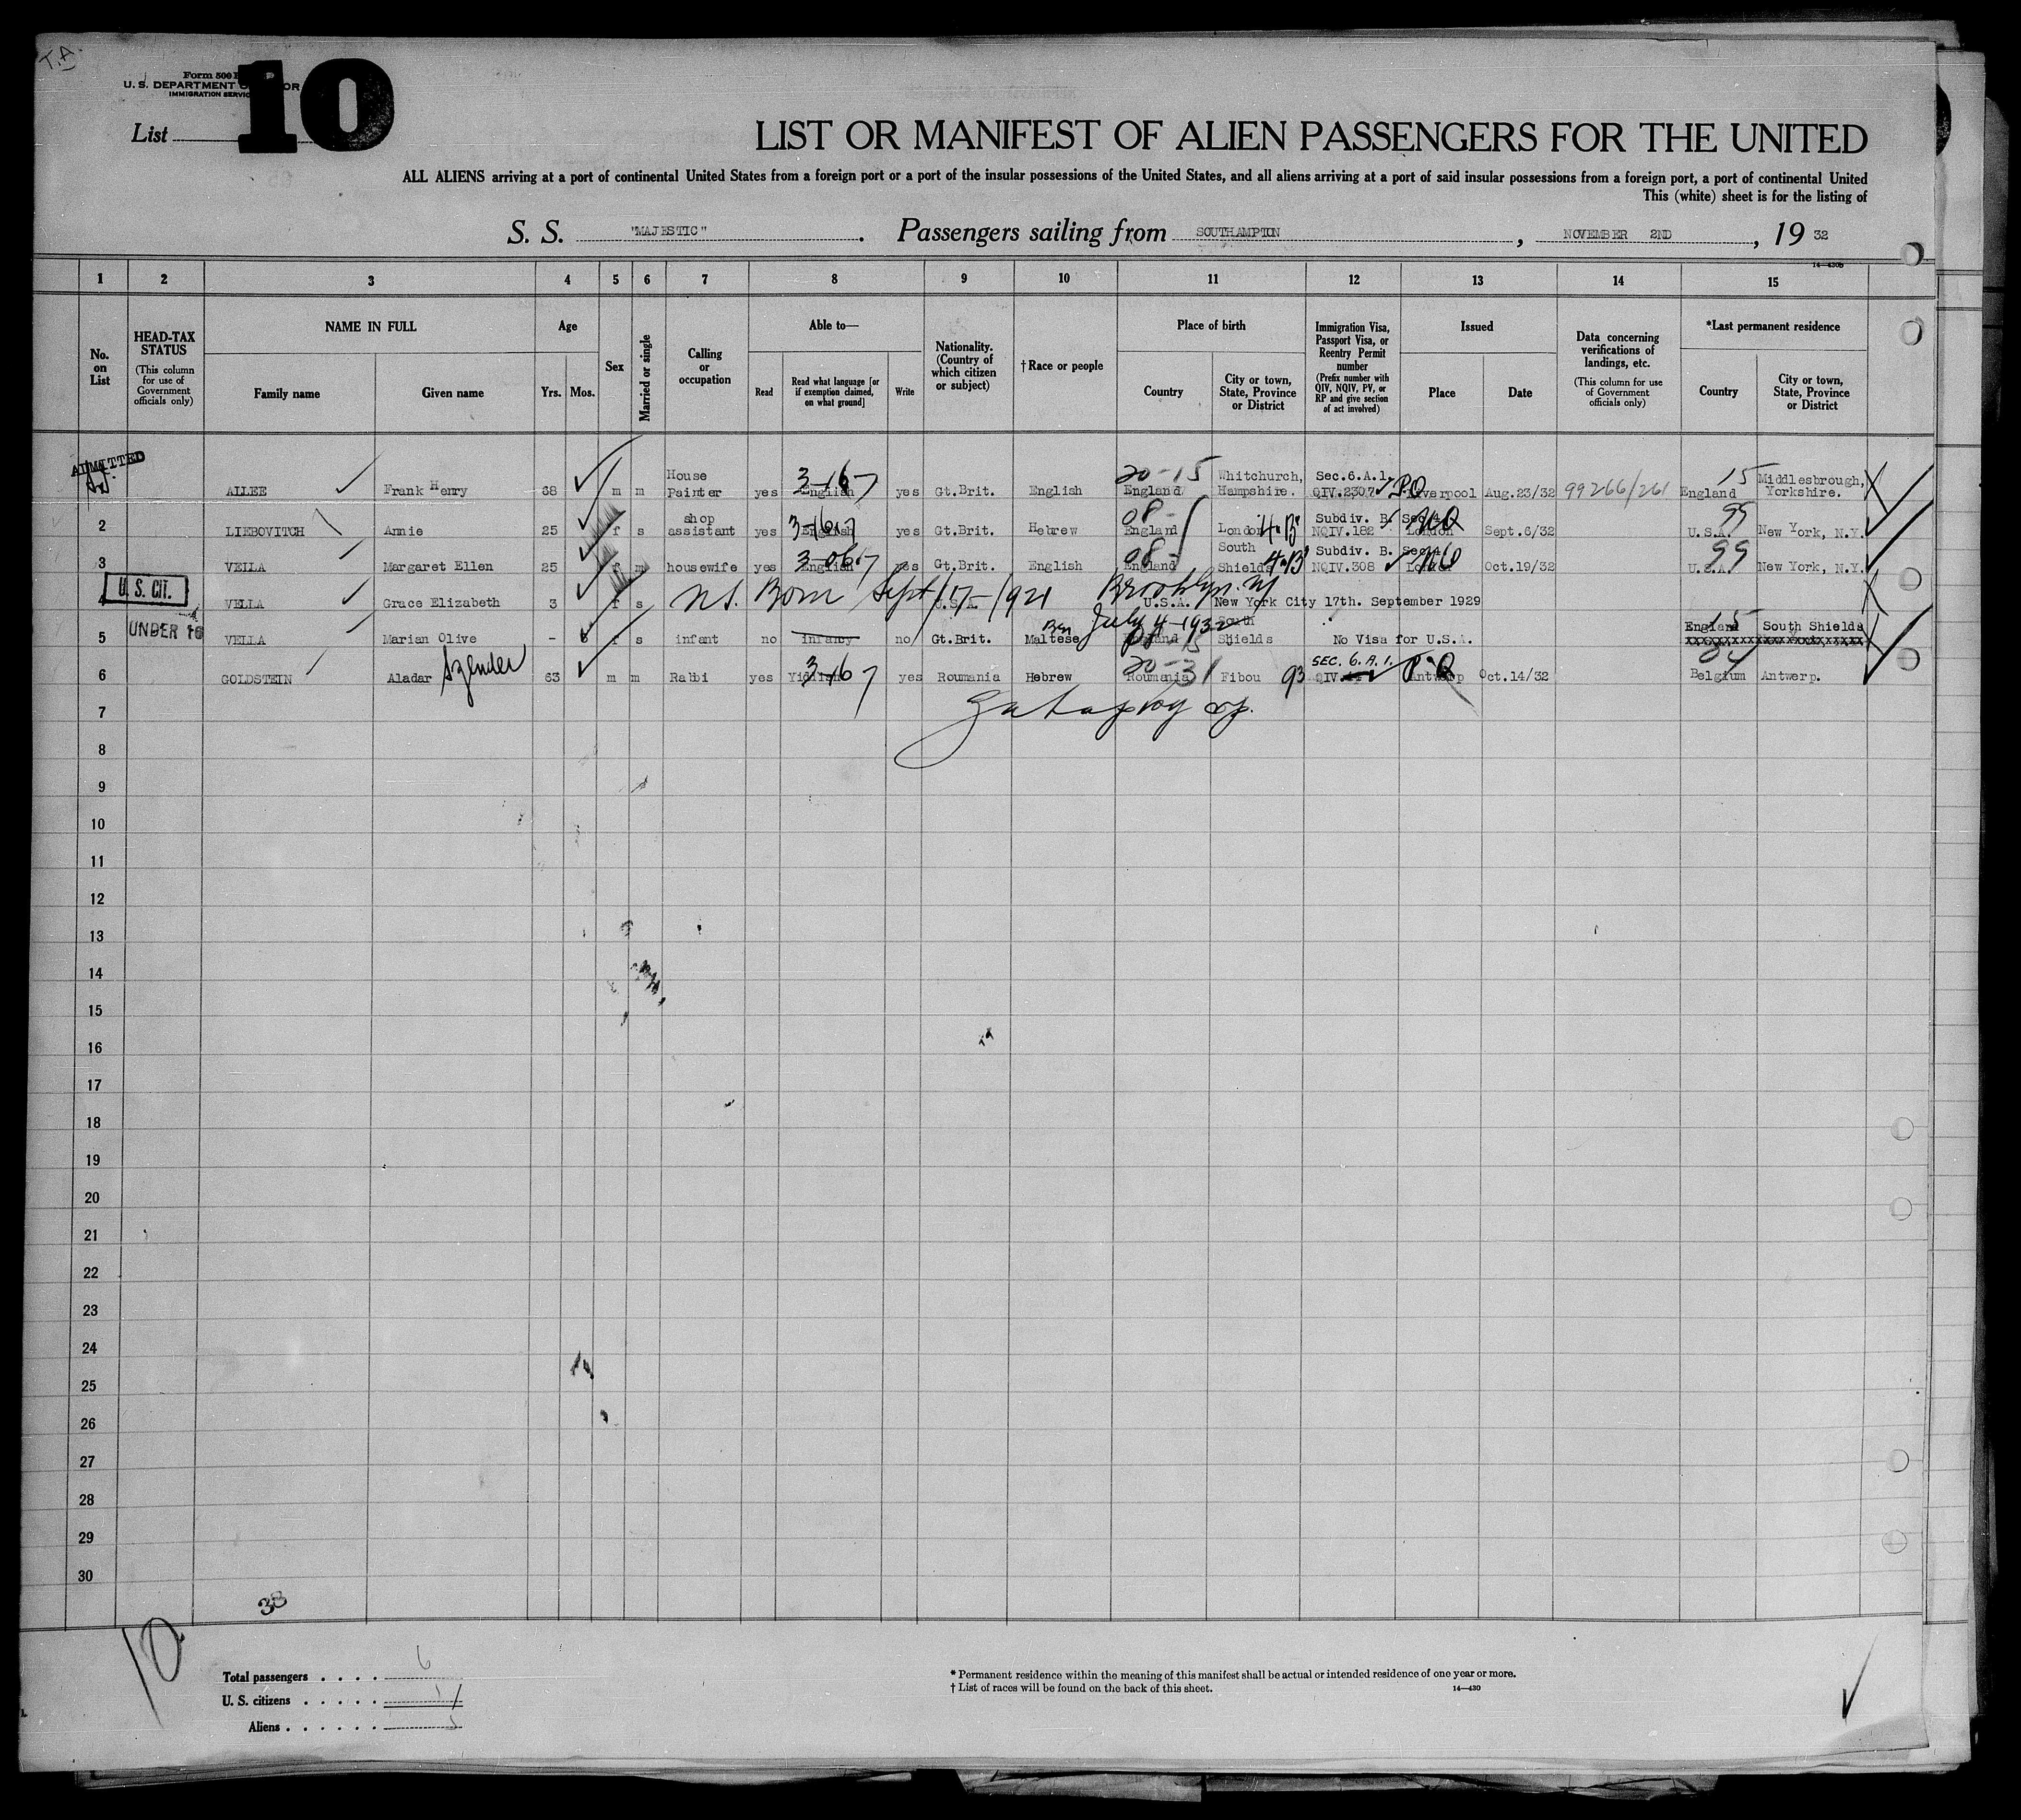 T.A.
Form 500
U. S. DEPARTMENT OR
IMMIGRATION SERVICE
List 10
LIST OR MANIFEST OF ALIEN PASSENGERS FOR THE UNITED
ALL ALIENS arriving at a port of continental United States from a foreign port or a port of the insular possessions of the United States, and all aliens arriving at a port of said insular possessions from a foreign port, a port of continental United
This (white) sheet is for the listing of
S. S. "MAJESTIC". Passengers sailing from SOUTHAMPTON, NOVEMBER 2ND, 19 32
1 2 3 4 5 6 7 8 9 10 11 12 13 14 15
No. on List
HEAD-TAX STATUS (This column for use of Government officials only)
NAME IN FULL
Family name Given name
Age
Yrs. Mos.
Sex
Married or single
Calling or occupation
Able to—
Read Read what language [or if exemption claimed, on what ground] Write
Nationality. (Country of which citizen or subject)
† Race or people
Place of birth
Country City or town, State, Province or District
Immigration Visa, Passport Visa, or Reentry Permit number (Prefix number with QIV, NQIV, PV, or RP and give section of act involved)
Issued
Place Date
Data concerning verifications of landings, etc. (This column for use of Government officials only)
*Last permanent residence
Country City or town, State, Province or District
ADMITTED ALLEE Frank Henry 68 m m House Painter yes English 3-16-7 yes Gt.Brit. English 20-15 England Whitchurch, Hampshire. Sec.6.A.1. QIV.2307 PQ Liverpool Aug.23/32 99266/261 15 England Middlesbrough, Yorkshire.
2 LIEBOVITCH Annie 25 f s shop assistant yes English yes Gt.Brit. Hebrew 08- England London 4-B Subdiv. B. Sec.4 NQIV.182 NQ London Sept.6/32 99 U.S.A. New York, N.Y.
3 VELLA Margaret Ellen 25 f m housewife yes English yes Gt.Brit. English 08- England South Shields 4-B Subdiv. B. Sec.4 NQIV.308 NQ London Oct.19/32 99 U.S.A. New York, N.Y.
U. S. CIT. 4 VELLA Grace Elizabeth 3 f s Born Sept 17- U.S.A. Brooklyn. NY U.S.A. New York City 17th. September 1929
UNDER 16 5 VELLA Marian Olive - 6 f s infant no Infancy no Gt.Brit. Maltese July 4-1932 England South Shields No Visa for U.S.A. 15 England South Shields
6 GOLDSTEIN Aladar Szender 63 m m Rabbi yes Yiddish 3-16-7 yes Roumania Hebrew 20-31 Roumania Fibou 93 SEC. 6. A. 1. QIV. PQ Antwerp Oct.14/32 04 Belgium Antwerp.
7
8
9
10
11
12
13
14
15
16
17
18
19
20
21
22
23
24
25
26
27
28
29
30
38
10
Total passengers . . . . 6
U. S. citizens . . . . . 1
Aliens . . . . . . 5
* Permanent residence within the meaning of this manifest shall be actual or intended residence of one year or more.
† List of races will be found on the back of this sheet. 14—430